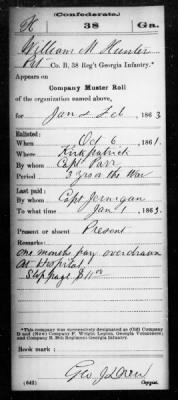 (Confederate.)
H 38 Ga.
William M Hunter
Pvt Co. B, 38 Reg't Georgia Infantry.*
Appears on
Company Muster Roll
of the organization named above,
for Jan & Feb, 1863
Enlisted:
When Oct 6, 1861.
Where Kirkpatrick
By whom Capt Parr
Period 3 yrs or the War
Last paid:
By whom Capt Jernigan
To what time Jan 1, 1863.
Present or absent Present
Remarks:
One months pay overdrawn
At Hospital
Stoppage $11 00
*This company was successively designated as (Old) Company
D and (New) Company F, Wright Legion, Georgia Volunteers;
and Company B, 38th Regiment Georgia Infantry.
Book mark:
(642)
Geo. J.
Copyist.